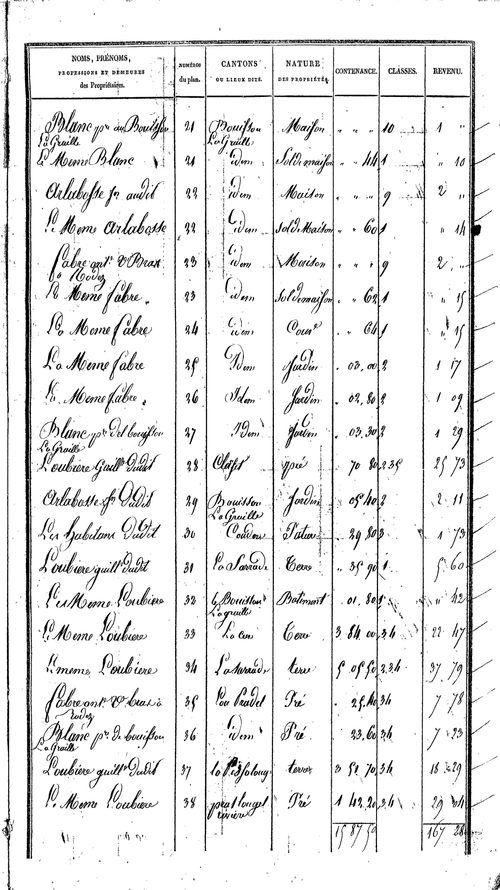 NOMS, PRÉNOMS, PROFESSIONS ET DEMEURES des Propriétaires. NUMÉROS du plan. CANTONS OU LIEUX DITS. NATURE DES PROPRIÉTÉS. CONTENANCE. CLASSES. REVENU.
Blanc pre au Bouisson La Graille 21 Bouisson La Graille Maison " " " 10 1 "
Le Meme Blanc 21 idem Sol de maison " " 44 1 " 10
Arlabosse fr audit 22 idem Maison " " " 9 2 "
Le Meme Arlabosse 22 idem Sol de Maison " " 60 1 " 14
Fabre ant. à Rodez 23 idem Maison " " " 9 2 "
Le Meme fabre 23 idem Sol de maison " " 62 1 " 15
Le Meme fabre 24 idem Cour " " 64 1 " 15
Le Meme fabre 25 Idem Jardin " 03 00 2 1 17
Le Meme fabre 26 Idem Jardin " 02 80 2 1 09
Blanc pre del bouisson La Graille 27 Idem Jardin " 03 30 2 1 29
Loubiere Guille dudit 28 pré " 70 80 2 3 5 25 73
Arlabosse fr dudit 29 Bouisson La Graille Jardin " 05 40 2 2 11
Les habitans dudit 30 Pature " 29 80 3 1 73
Loubiere guille dudit 31 La Sarrade Terre " 35 90 1 5 60
Le Meme Loubiere 32 le Bouisson La graille Batiment " 01 80 1 " 42
Le Meme Loubiere 33 Terre 3 84 00 3 4 22 47
Le meme Loubiere 34 La sarrade terre 5 05 50 2 3 4 37 79
fabre ant. à rodez 35 Lou Pradel Pré " 25 40 3 4 7 78
Blanc pre de bouisson La Graille 36 idem Pré " 23 60 3 4 7 23
Loubiere guille dudit 37 terre 3 51 70 3 4 18 29
Le Meme Loubiere 38 prat louget riviere Pré 1 42 20 3 4 29 34
15 87 50 167 28